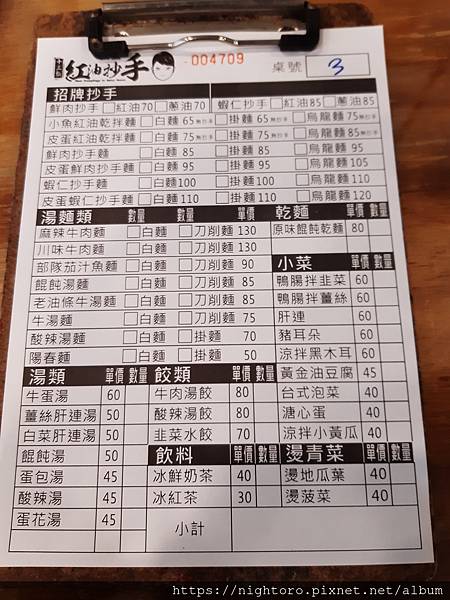 紅油抄手
004709
桌號 3
招牌抄手
鮮肉抄手 □紅油70 □蔥油70 蝦仁抄手 □紅油85 □蔥油85
小魚紅油乾拌麵 □白麵 65 □掛麵 65 □烏龍麵 75
皮蛋紅油乾拌麵 □白麵 75 □掛麵 75 □烏龍麵 85
鮮肉抄手麵 □白麵 85 □掛麵 85 □烏龍麵 95
皮蛋鮮肉抄手麵 □白麵 95 □掛麵 95 □烏龍麵105
蝦仁抄手麵 □白麵100 □掛麵100 □烏龍麵 110
皮蛋蝦仁抄手麵 □白麵110 □掛麵110 □烏龍麵 120
湯麵類 數量 數量 單價
麻辣牛肉麵 □白麵 □刀削麵 130
川味牛肉麵 □白麵 □刀削麵 130
部隊茄汁魚麵 □白麵 □刀削麵 90
餛飩湯麵 □白麵 □刀削麵 85
老油條牛湯麵 □白麵 □刀削麵 85
牛湯麵 □白麵 □刀削麵 75
酸辣湯麵 □白麵 □掛麵 70
陽春麵 □白麵 □掛麵 50
乾麵 單價 數量
原味餛飩乾麵 80
小菜 單價 數量
鴨腸拌韭菜 60
鴨腸拌薑絲 60
肝連 60
豬耳朵 60
涼拌黑木耳 60
黃金油豆腐 45
台式泡菜 40
溏心蛋 40
涼拌小黃瓜 40
湯類 單價 數量
牛蛋湯 60
薑絲肝連湯 50
白菜肝連湯 50
餛飩湯 50
蛋包湯 45
酸辣湯 45
蛋花湯 45
餃類 單價 數量
牛肉湯餃 80
酸辣湯餃 80
韭菜水餃 70
飲料 單價 數量
冰鮮奶茶 40
冰紅茶 30
燙青菜 單價 數量
燙地瓜葉 40
燙菠菜 40
小計
https://nightoro.pixnet.net/album